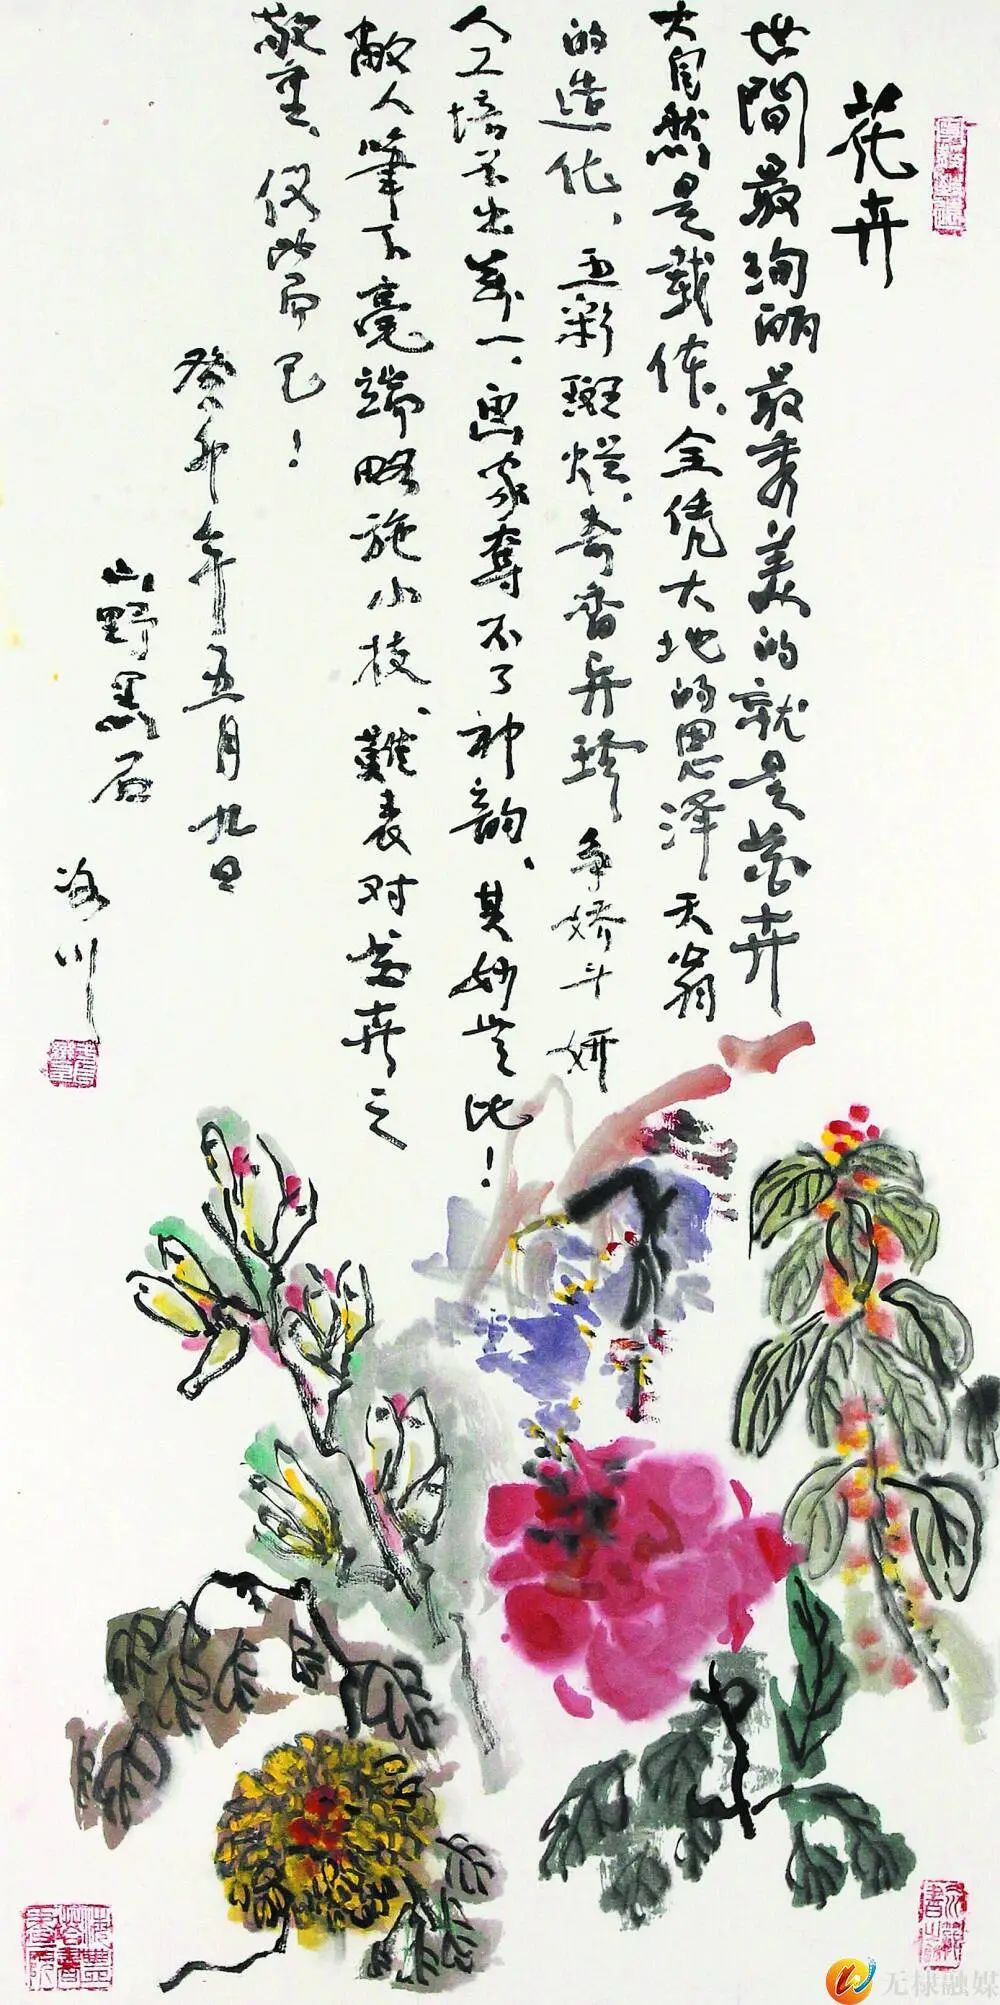 花卉
世間最绚丽最秀美的就是花卉
大自然是载体、全凭大地的恩泽天翁
的造化、五彩斑烂、奇香异珍争娇斗妍
人工培养出万一、画家夺不了神韵、其妙无比！
敝人笔下毫端略施小技、難表对花卉之
敬意、仅此而已！
癸卯年五月九日
山野黑石
洛川
无棣融媒